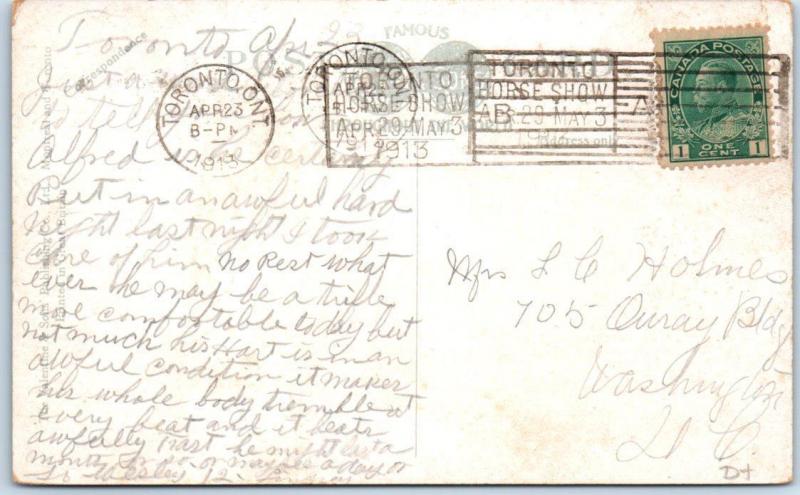 Toronto Apr 23
Just a
to tell you how
Alfred is he certainly
Put in an awful hard
Night last night I took
Care of him no Rest what
ever he may be a trifle
more comfortable today but
not much his Hart is in an
awful condition it makes
his whole body tremble at
every beat and it beats
awfully fast he might last a
month or so or maybe a day or
Correspondence
FAMOUS
POST
TORONTO, ONT.
APR 23
8-PM
1913
TORONTO, ONT.
APR 23
1913
TORONTO
HORSE SHOW
APR. 29-MAY 3
1913
TORONTO
HORSE SHOW
29-MAY 3
Address only
CANADA POSTAGE
1 ONE CENT 1
Mrs L C Holmes
705 Ouray Bldg
Washington
D. C.
Valentine & Sons' Publishing Co., Ltd., Montreal and Toronto
Printed in Great Britain
D+